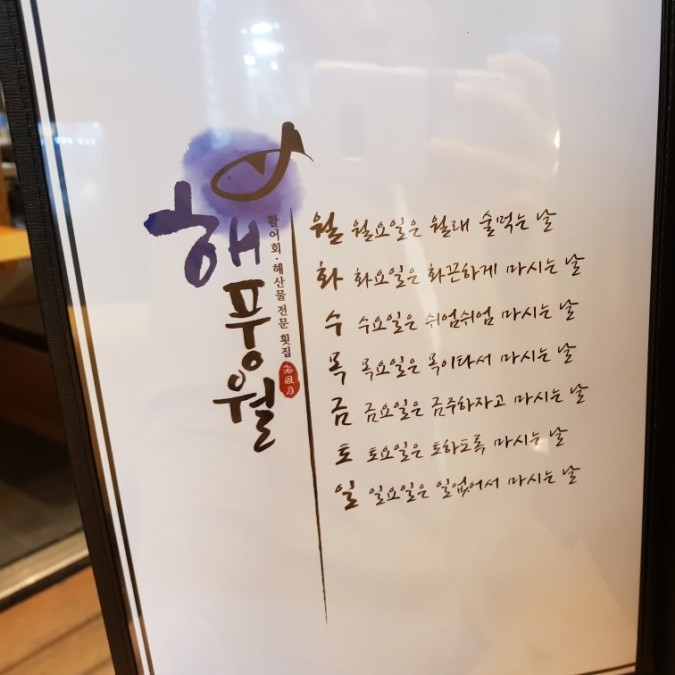 해풍월
활어회·해산물 전문 횟집
海風月
월 월요일은 월래 술먹는 날
화 화요일은 화끈하게 마시는 날
수 수요일은 쉬엄쉬엄 마시는 날
목 목요일은 목이타서 마시는 날
금 금요일은 금주하자고 마시는 날
토 토요일은 토하도록 마시는 날
일 일요일은 일없어서 마시는 날